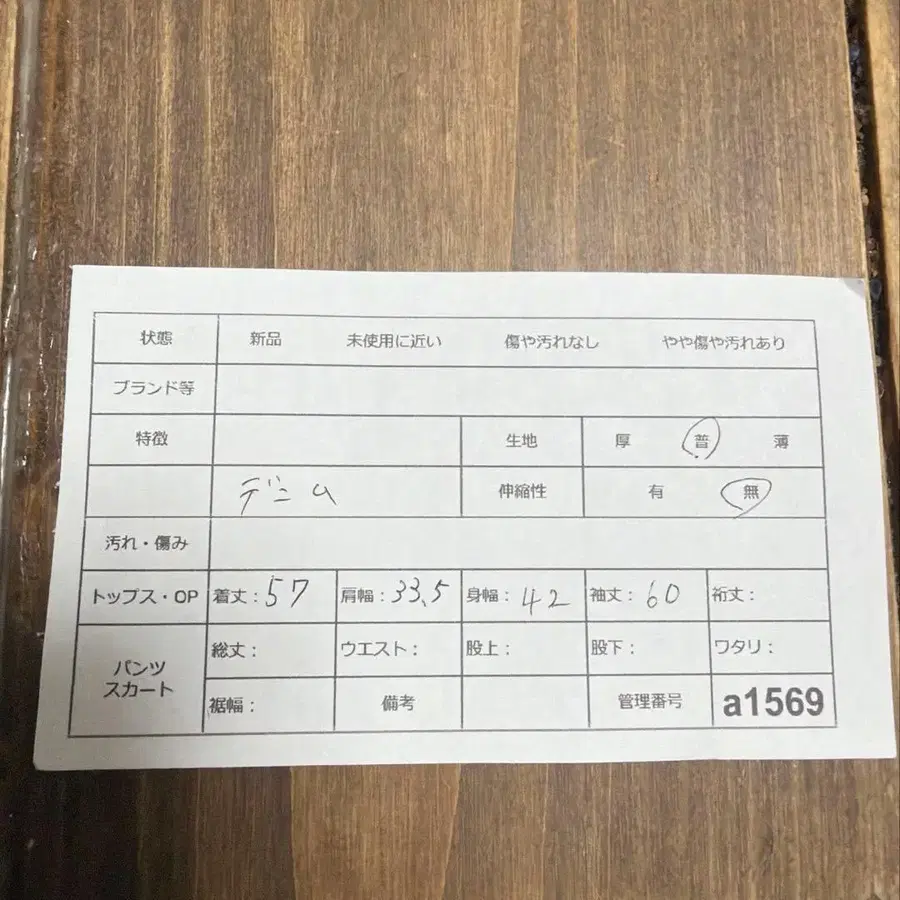 状態 新品 未使用に近い 傷や汚れなし やや傷や汚れあり
ブランド等
特徴 生地 厚 普 薄
デニム 伸縮性 有 無
汚れ・傷み
トップス・OP 着丈:57 肩幅:33.5 身幅:42 袖丈:60 裄丈:
パンツ
スカート
総丈: ウエスト: 股上: 股下: ワタリ:
裾幅: 備考 管理番号 a1569